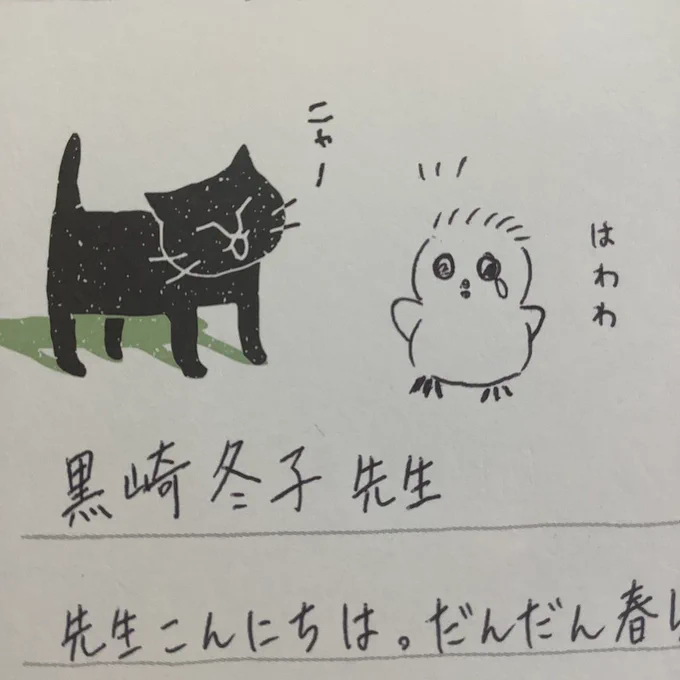 ニャー
はわわ
黒崎冬子先生
先生こんにちは。だんだん春ら